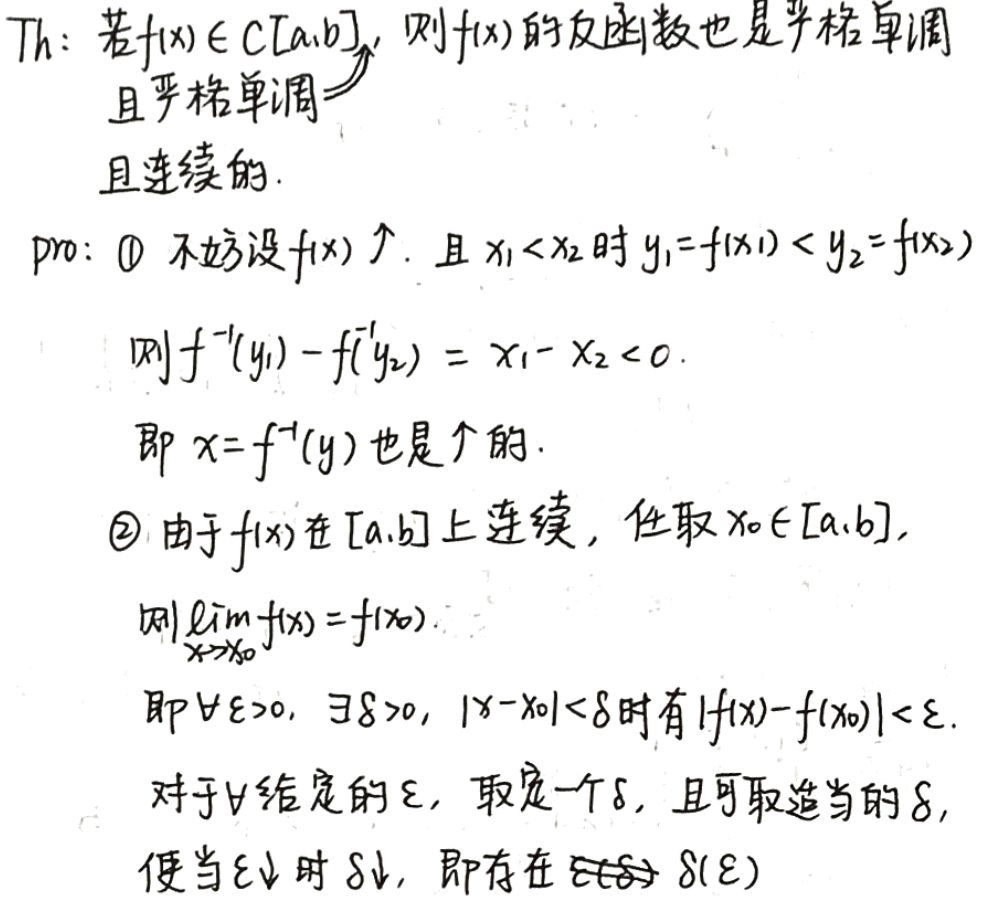 Th: 若f(x)∈C[a,b], 则f(x)的反函数也是严格单调
且严格单调
且连续的.
pro: ① 不妨设f(x)↑. 且 x₁<x₂时 y₁=f(x₁)<y₂=f(x₂)
则f⁻¹(y₁)-f⁻¹(y₂) = x₁-x₂<0.
即 x=f⁻¹(y)也是↑的.
② 由于f(x)在[a,b]上连续, 任取x₀∈[a,b],
则lim f(x)=f(x₀).
x→x₀
即∀ε>0, ∃δ>0, |x-x₀|<δ时有|f(x)-f(x₀)|<ε.
对于∀给定的ε, 取定一个δ, 且可取适当的δ,
使当ε↓时 δ↓, 即存在 ε(δ) δ(ε)